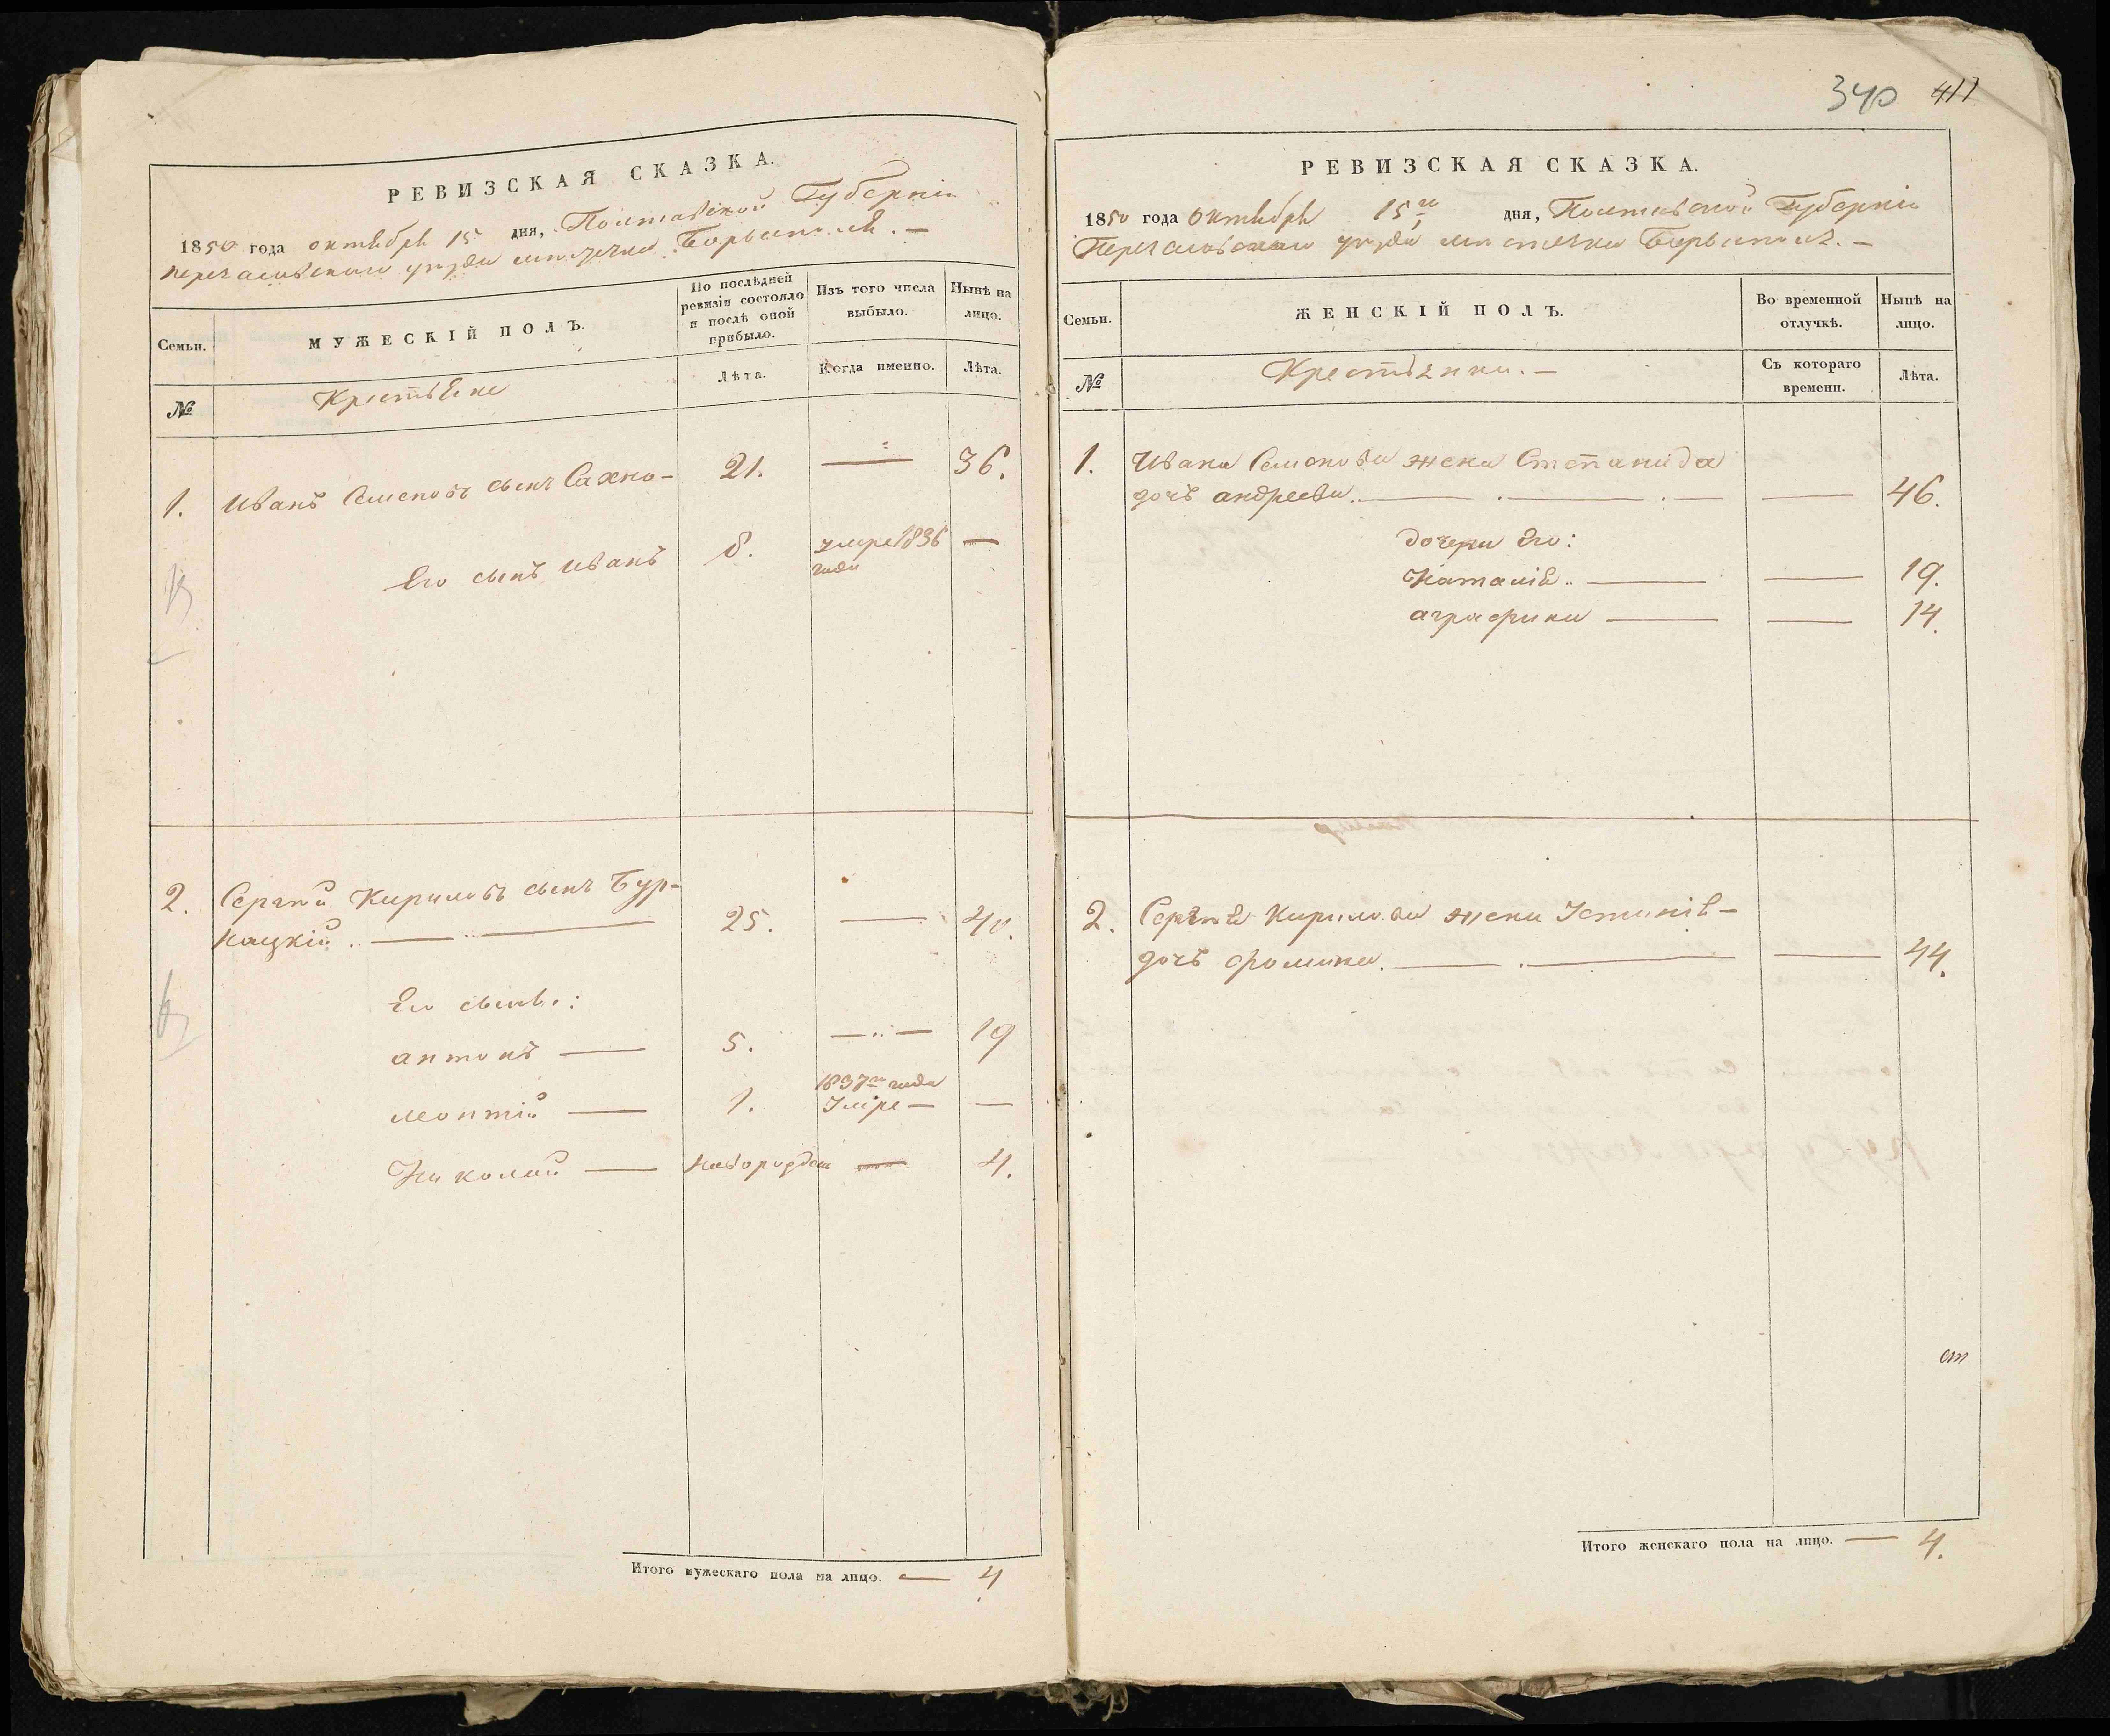 РЕВИЗСКАЯ СКАЗКА.
1850 года октября 15 дня, Полтавской Губерніи
переяславскаго уезда местечка Борысполя. —
Семьи.
МУЖЕСКІЙ ПОЛЪ.
По послѣдней ревизіи состояло и послѣ оной прибыло.
Изъ того числа выбыло.
Нынѣ на лицо.
№
Крестьяне
Лѣта.
Когда именно.
Лѣта.
1. Иванъ Семеновъ сынъ Сахно — 21. — 36.
Его сынъ Иванъ 8. умре 1836 —
года
2. Сергѣй Кириловъ сынъ Бур-
кацкій. — 25. — 40.
Его сыны:
антонъ — 5. — 19
леонтій — 1. 1837го года
умре — —
Николай — новорожден — 4.
Итого мужескаго пола на лицо. — 4
340 411
РЕВИЗСКАЯ СКАЗКА.
1850 года октября 15го дня, Полтавской Губерніи
Переяславскаго уезда местечка Борысполя. —
Семьи.
ЖЕНСКІЙ ПОЛЪ.
Во временной отлучкѣ.
Нынѣ на лицо.
№
Крестьянки. —
Съ котораго времени.
Лѣта.
1. Ивана Семенова жена Степанида
дочь андреева. — — 46.
дочери Его:
Наталія — — 19.
аграфина — — 14.
2. Сергѣя Кирилова жена Устинія —
дочь фомина. — — 44.
ст
Итого женскаго пола на лицо. — 4.